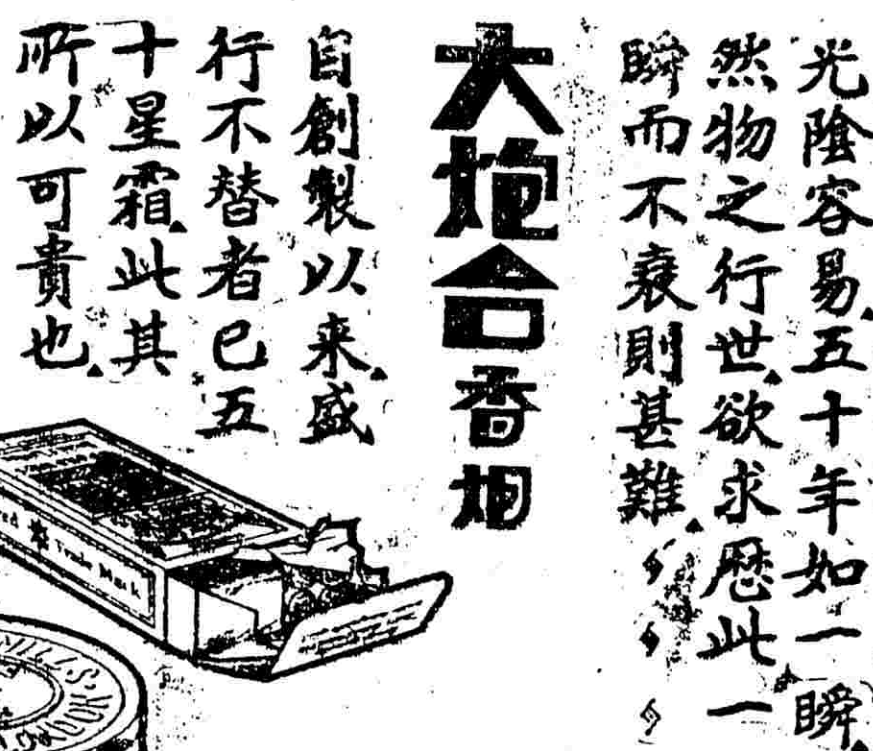 光陰容易▲五十年如一瞬▲
然物之行世▲欲求歷此一
瞬而不衰則甚難▲
大炮台香烟
自創製以来▲盛
行不替者已五
十星霜▲此其
所以可貴也▲
Trade Mark
WILLS'S